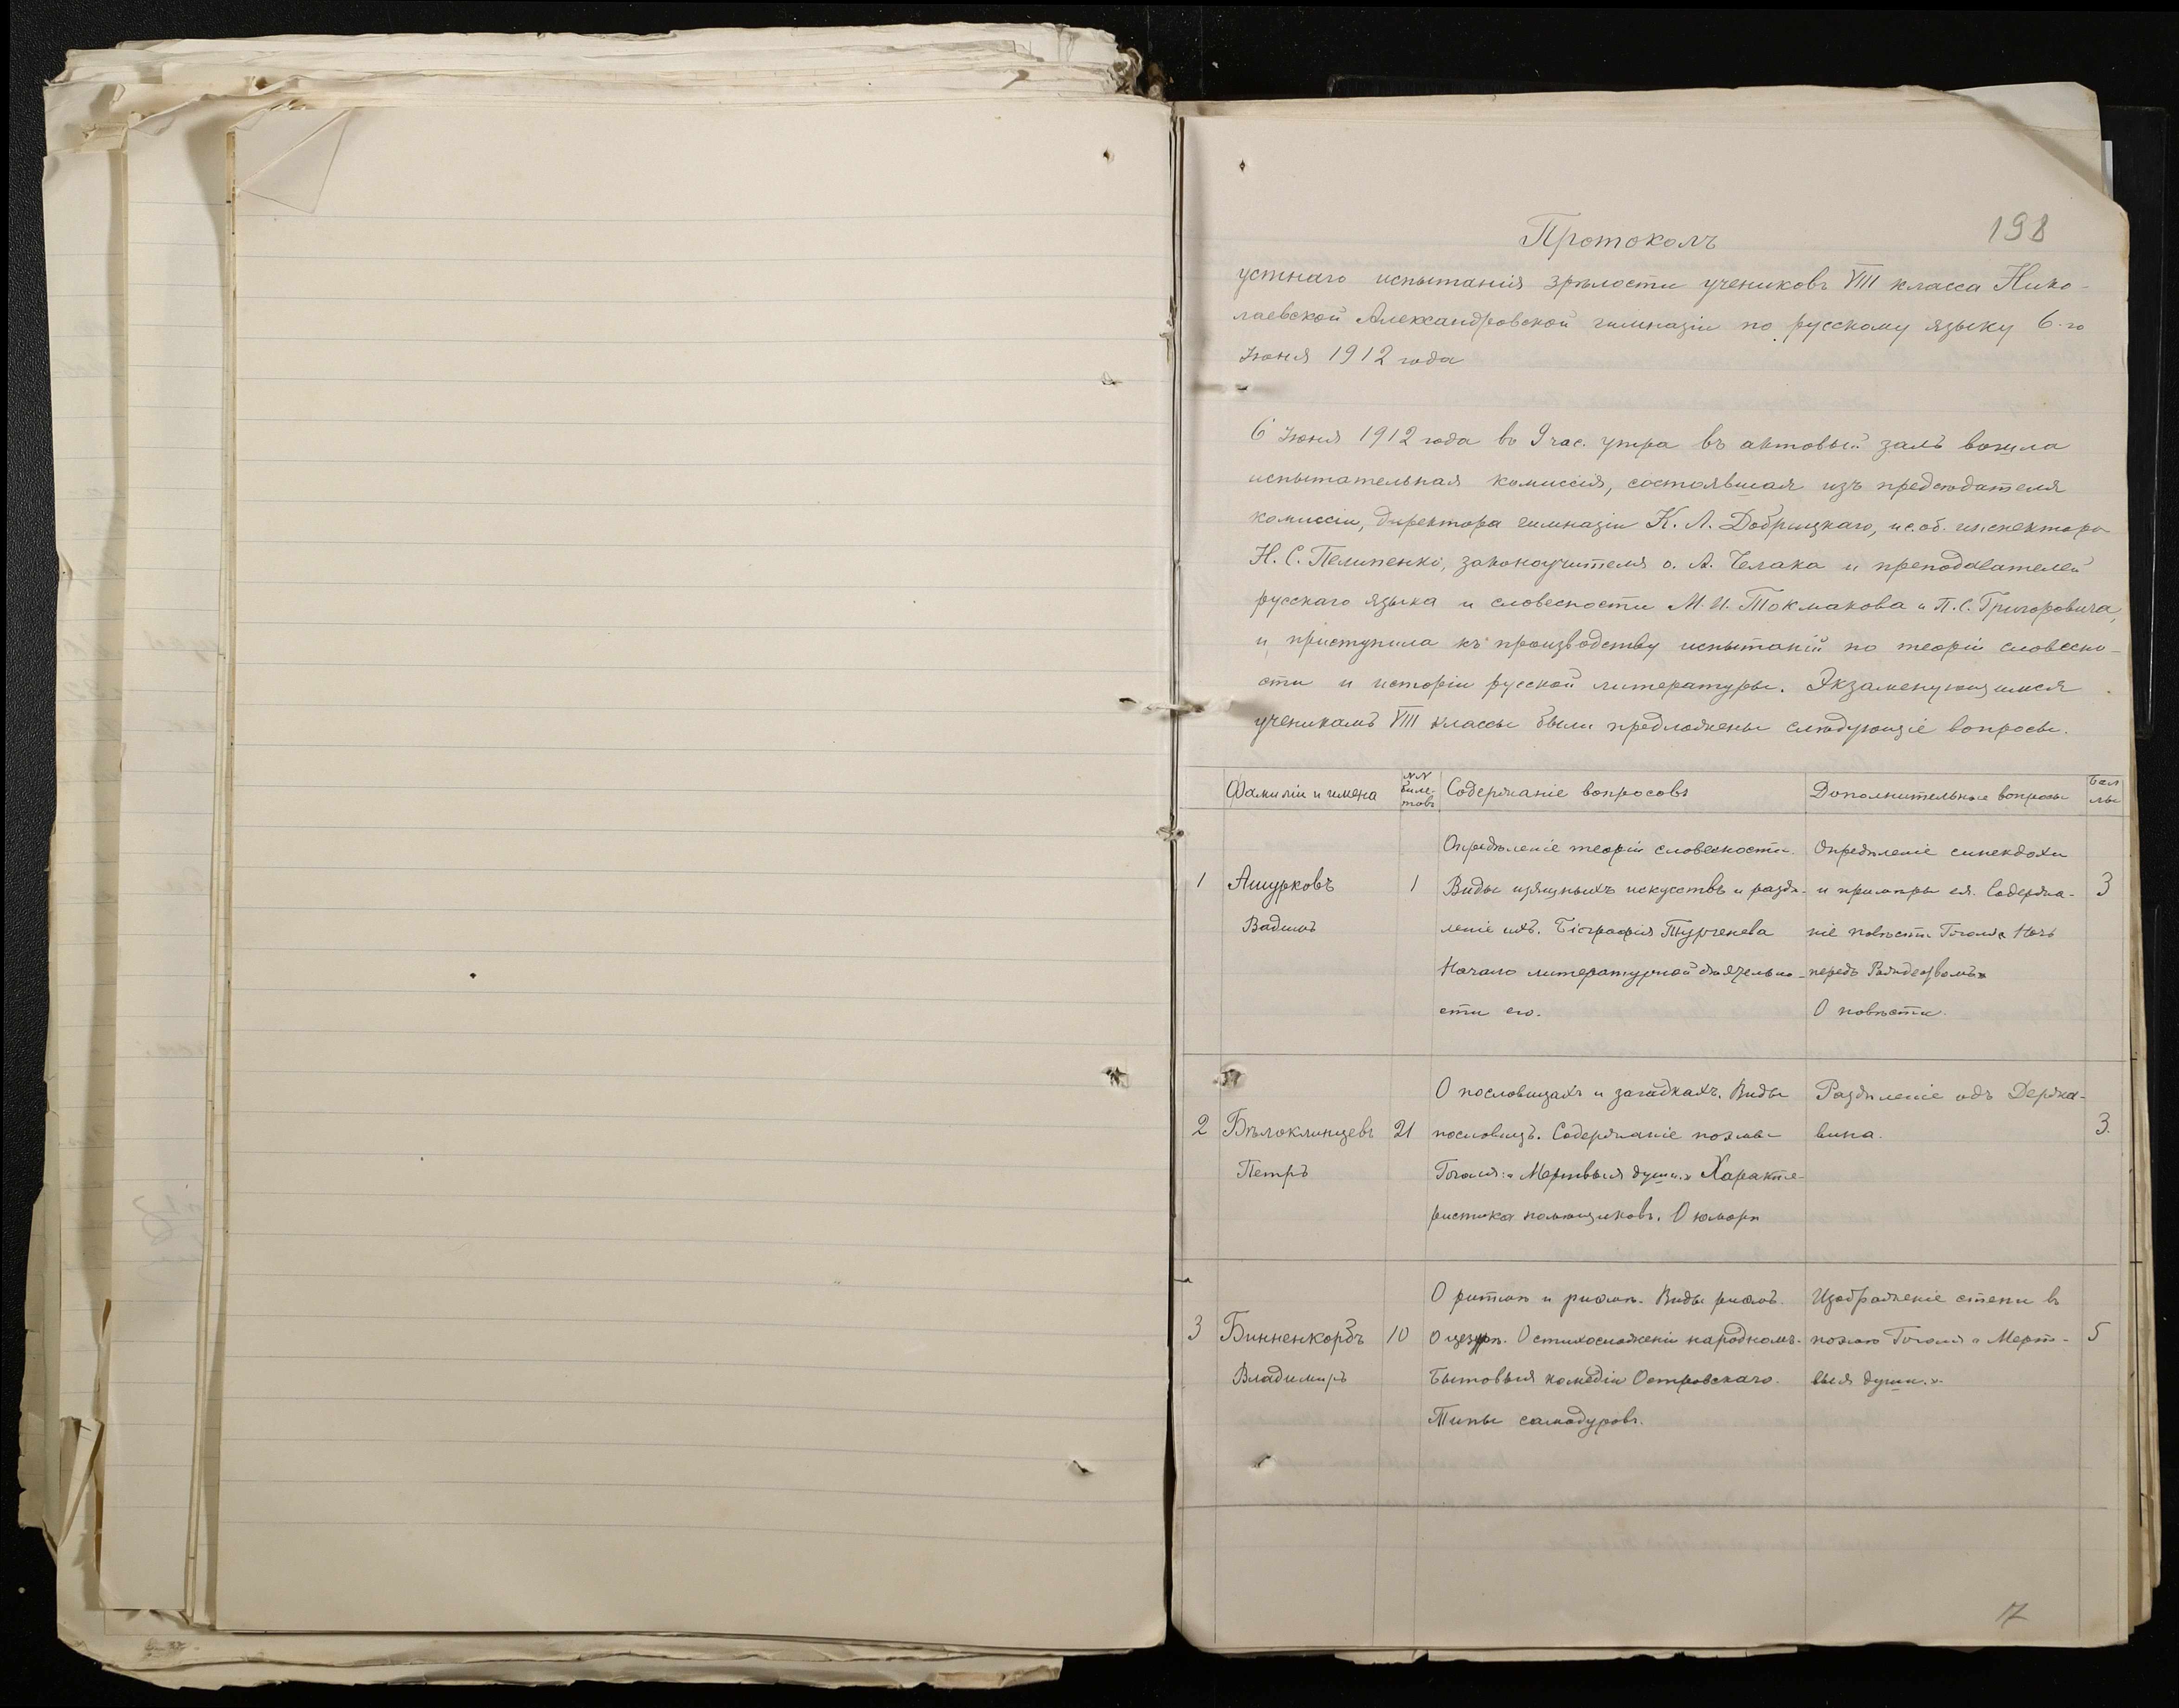 198
Протоколъ
устнаго испытанія зрѣлости учениковъ VIII класса Нико-
лаевской Александровской гимназіи по русскому языку 6-го
Іюня 1912 года
6 Іюня 1912 года въ 9 час. утра въ актовый залъ вошла
испытательная комиссія, состоявшая изъ предсѣдателя
комиссіи, директора гимназіи К. Л. Добрицкаго, ис. об. инспектора
Н. С. Пелипенко, законоучителя о. А. Челака и преподавателей
русскаго языка и словесности М. И. Токмакова и П. С. Григоровича,
и приступила къ производству испытаній по теоріи словесно-
сти и исторіи русской литературы. Экзаменующимся
ученикамъ VIII класса были предложены слѣдующіе вопросы.
Фамиліи и имена №№ биле-товъ Содержаніе вопросовъ Дополнительные вопросы Бал-лы
Опредѣленіе теоріи словесности. Опредѣленіе синекдохи
1 Ашурковъ 1 Виды изящныхъ искусствъ и раздѣ- и примѣры ея. Содержа- 3
Вадимъ леніе ихъ. Біографія Тургенева ніе повѣсти Гоголя „Ночь
Начало литературной дѣятельно- передъ Рождествомъ»
сти его. О повѣсти.
О пословицахъ и загадкахъ. Виды Раздѣленіе одъ Держа-
2 Бѣлоклинцевъ 21 пословицъ. Содержаніе поэмы вина. 3.
Петръ Гоголя: „Мертвыя души.» Характе-
ристика помѣщиковъ. О юморѣ
О ритмѣ и риѳмѣ. Виды риѳмъ. Изображеніе степи въ
3 Бинненкорбъ 10 О цезурѣ. О стихосложеніи народномъ. поэмѣ Гоголя „Мерт- 5
Владимиръ Бытовыя комедіи Островскаго. выя души.»
Типы самодуровъ.
17